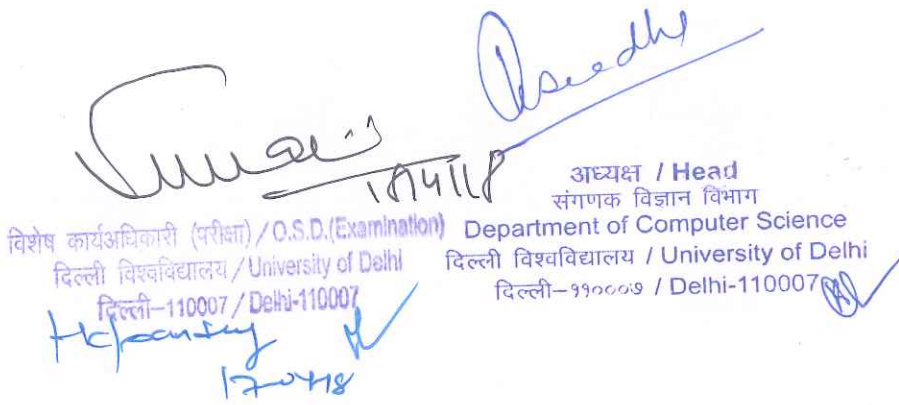 विशेष कार्यअधिकारी (परीक्षा) / O.S.D.(Examination)
दिल्ली विश्वविद्यालय / University of Delhi
दिल्ली-110007 / Delhi-110007
अध्यक्ष / Head
संगणक विज्ञान विभाग
Department of Computer Science
दिल्ली विश्वविद्यालय / University of Delhi
दिल्ली-११०००७ / Delhi-110007